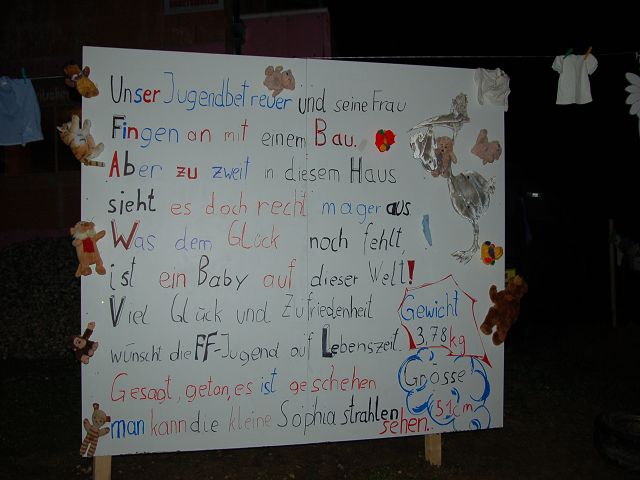 Unser Jugendbetreuer und seine Frau
Fingen an mit einem Bau.
Aber zu zweit in diesem Haus
sieht es doch recht mager aus
Was dem Glück noch fehlt,
ist ein Baby auf dieser Welt!
Viel Glück und Zufriedenheit
wünscht die FF-Jugend auf Lebenszeit.
Gesagt, getan, es ist geschehen
man kann die kleine Sophia strahlen sehen.
Gewicht
3,78 kg
Grösse
51cm